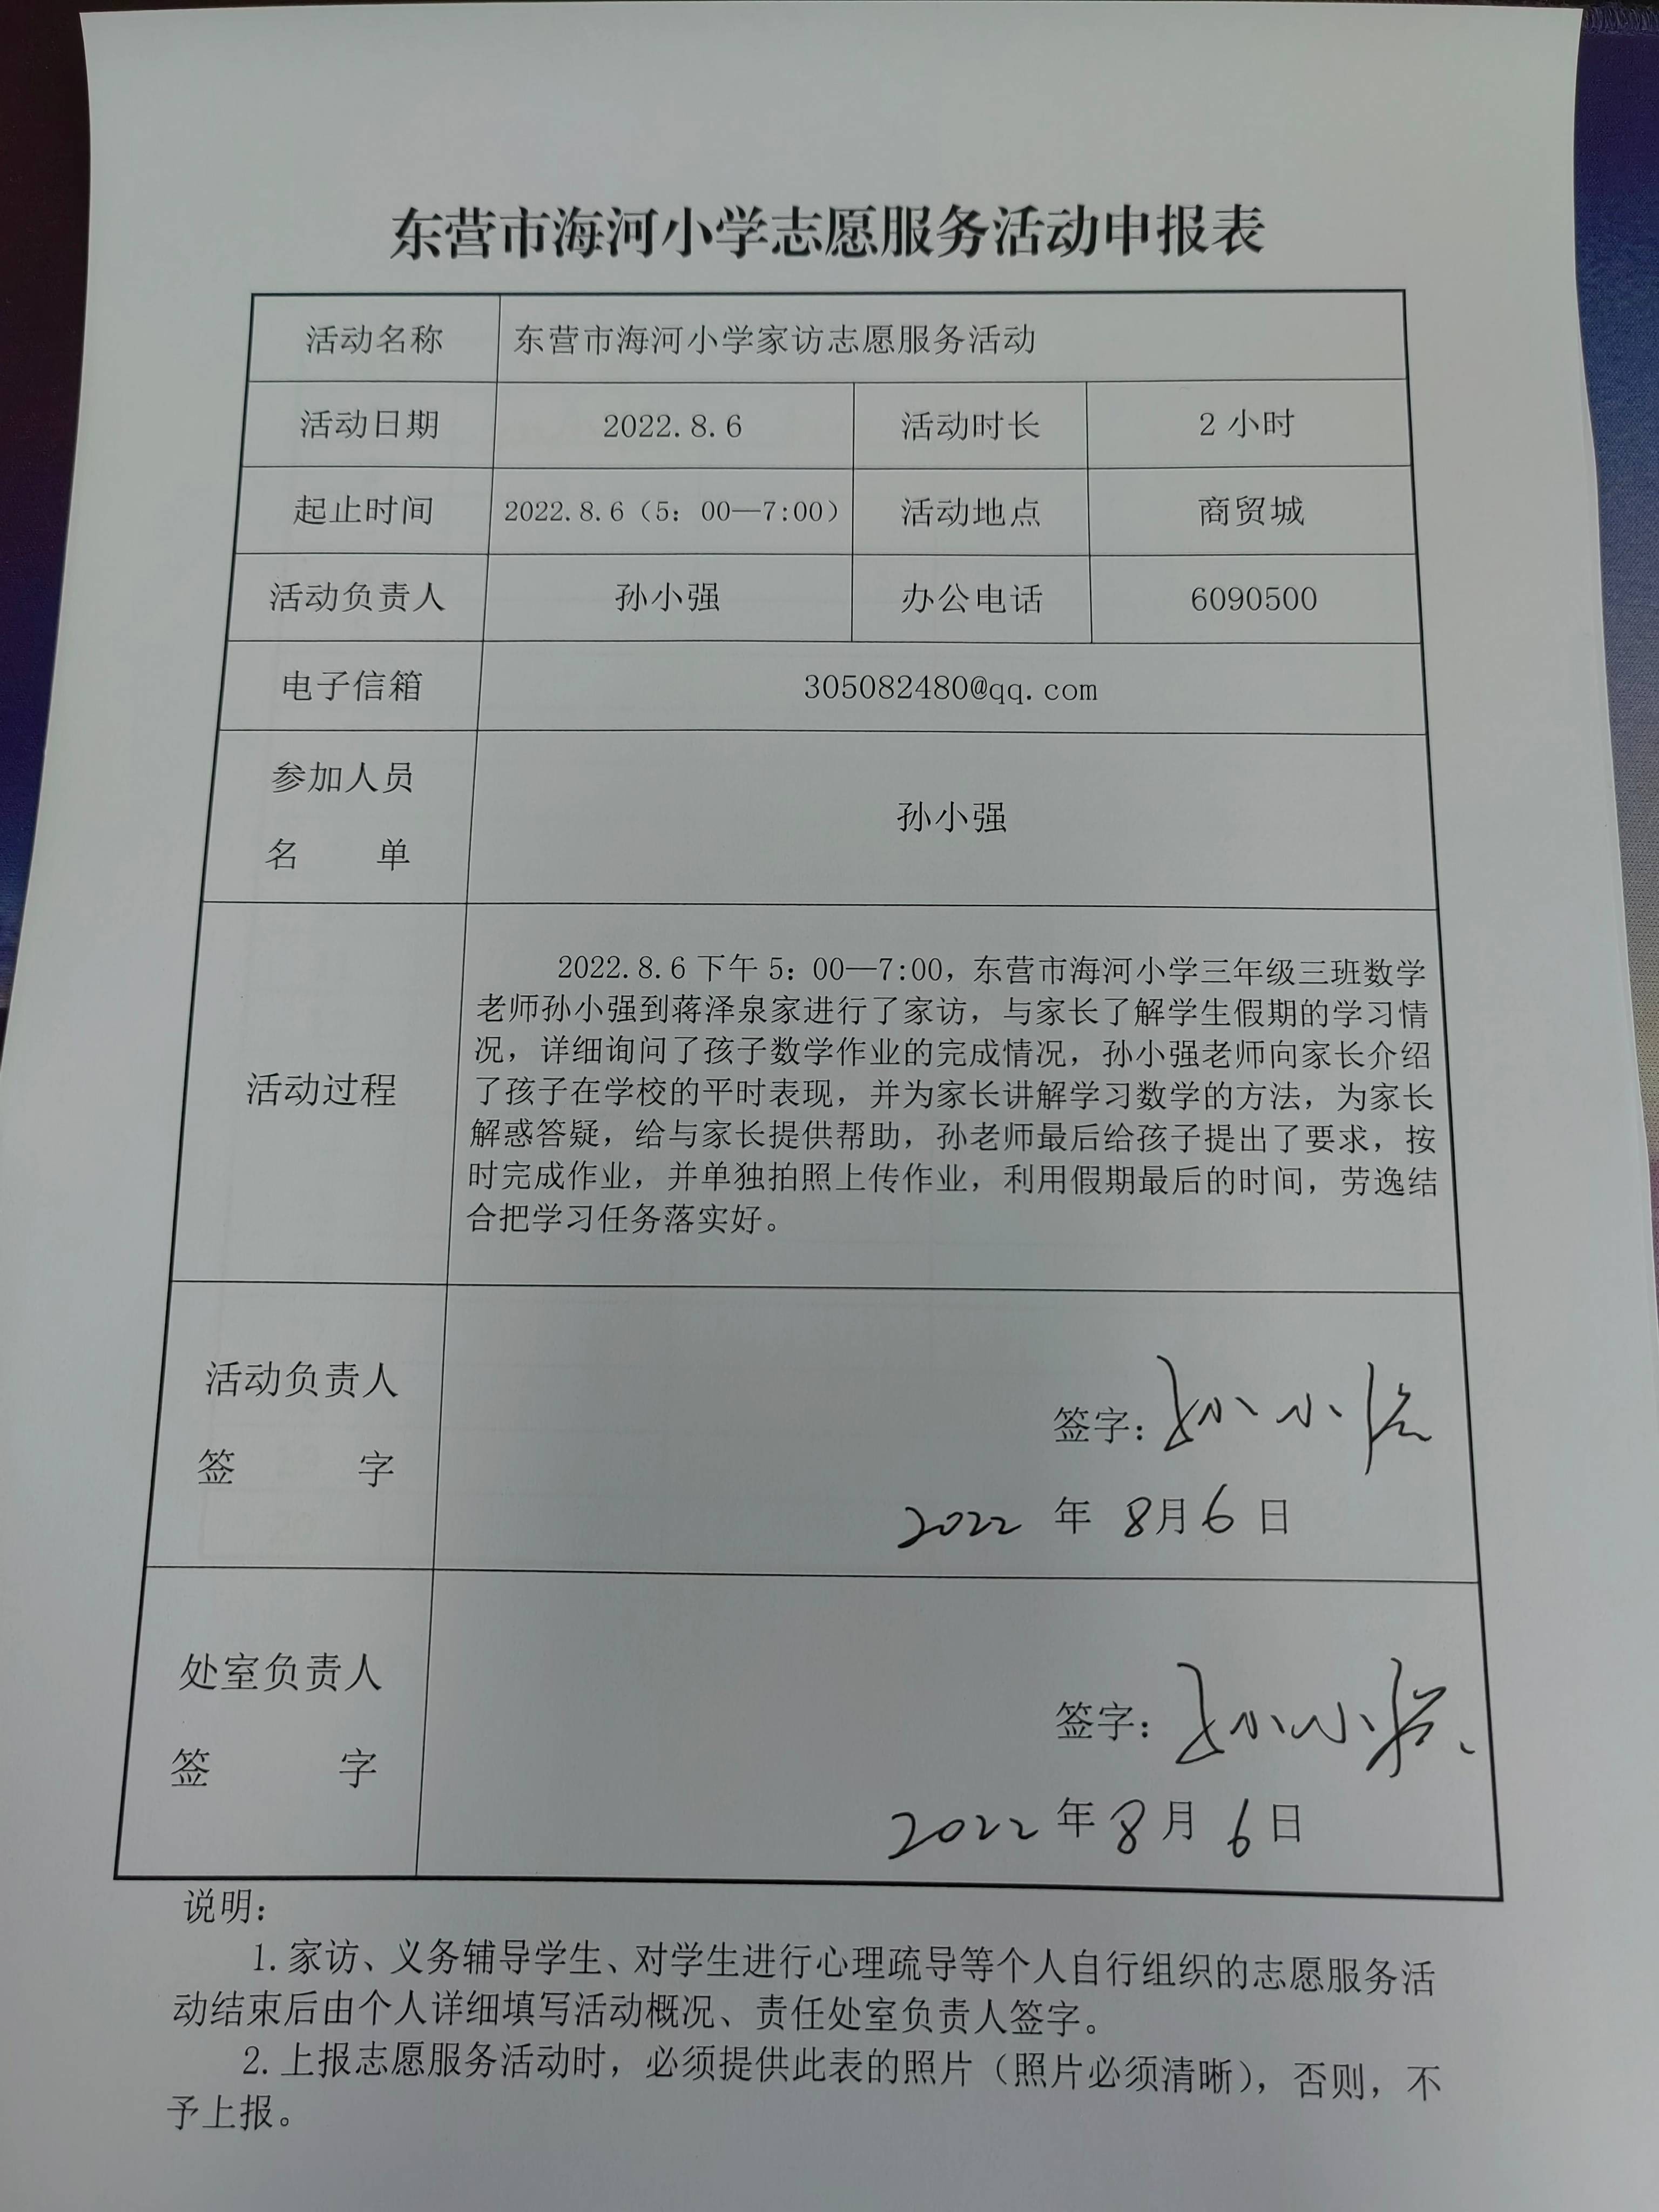 东营市海河小学志愿服务活动申报表
活动名称 东营市海河小学家访志愿服务活动
活动日期 2022.8.6 活动时长 2小时
起止时间 2022.8.6（5：00—7:00） 活动地点 商贸城
活动负责人 孙小强 办公电话 6090500
电子信箱 305082480@qq.com
参加人员
名 单
孙小强
活动过程
2022.8.6下午5：00—7:00，东营市海河小学三年级三班数学
老师孙小强到蒋泽泉家进行了家访，与家长了解学生假期的学习情
况，详细询问了孩子数学作业的完成情况，孙小强老师向家长介绍
了孩子在学校的平时表现，并为家长讲解学习数学的方法，为家长
解惑答疑，给与家长提供帮助，孙老师最后给孩子提出了要求，按
时完成作业，并单独拍照上传作业，利用假期最后的时间，劳逸结
合把学习任务落实好。
活动负责人
签 字
签字：孙小强
2022 年 8月6日
处室负责人
签 字
签字：孙小
2022年8月6日
说明：
1.家访、义务辅导学生、对学生进行心理疏导等个人自行组织的志愿服务活
动结束后由个人详细填写活动概况、责任处室负责人签字。
2.上报志愿服务活动时，必须提供此表的照片（照片必须清晰），否则，不
予上报。